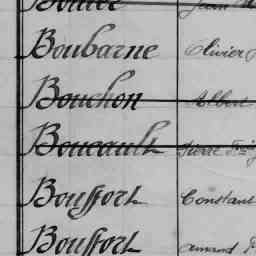 Boubarne Olivier
Bouchon Albert
Boucault Pierre
Bouffort Constant
Bouffort Armand